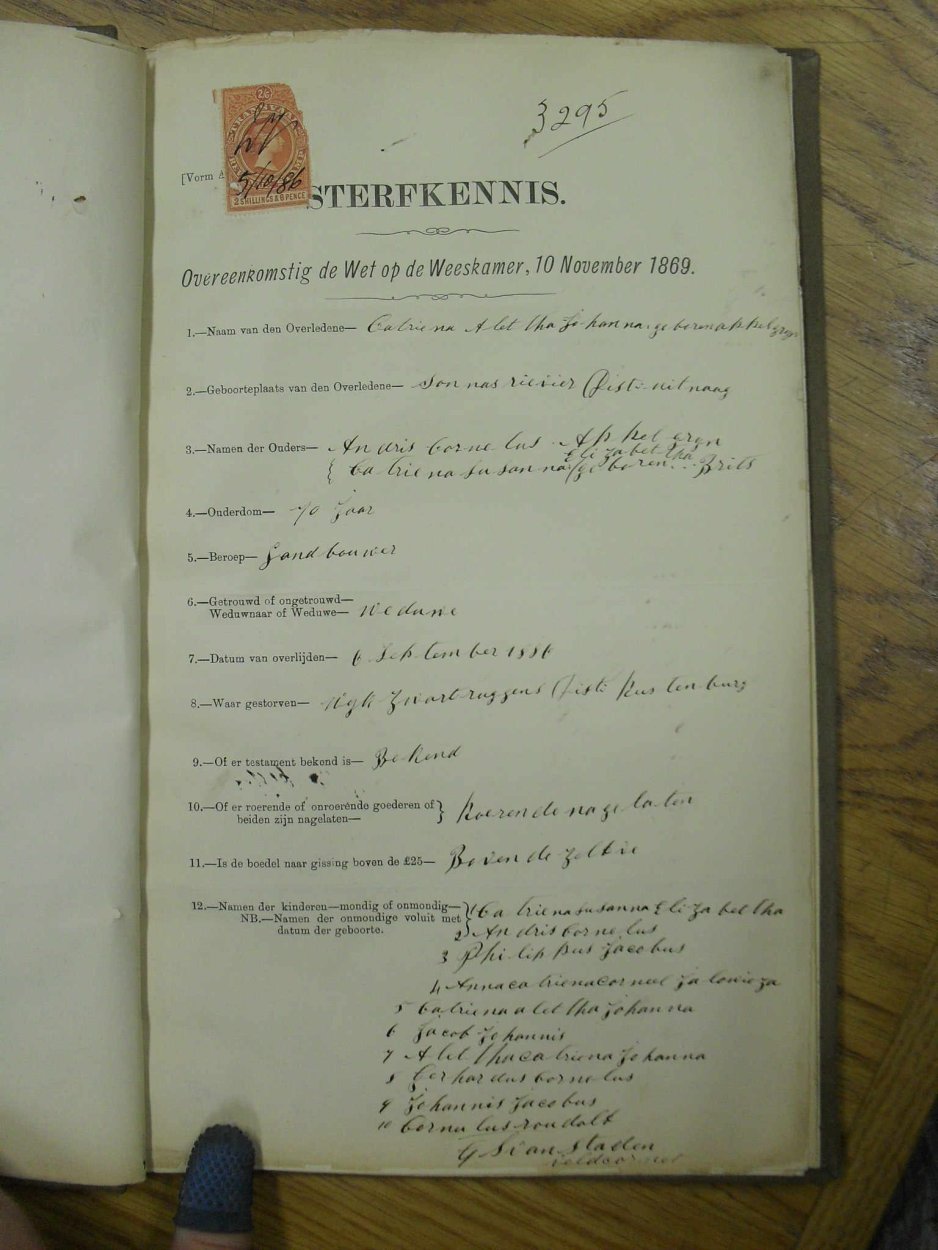 3295
2/6
TRANSVAAL
5/10/86
2 SHILLINGS & 6 PENCE
[Vorm A
STERFKENNIS.
Overeenkomstig de Wet op de Weeskamer, 10 November 1869.
1.—Naam van den Overledene— Catriena Alettha Johanna geboren appelgryn
2.—Geboorteplaats van den Overledene— Sonnas rievier Dist: uitnaag
3.—Namen der Ouders— Andris Cornelus Appel gryn
{ Catriena Susanna Elizabettha geboren... Brits
4.—Ouderdom— 70 Jaar
5.—Beroep— Landbouwer
6.—Getrouwd of ongetrouwd—
Weduwnaar of Weduwe— Weduwe
7.—Datum van overlijden— 6 September 1886
8.—Waar gestorven— Wyk Zwartruggens Dist: Rustenburg
9.—Of er testament bekend is— Bekend
10.—Of er roerende of onroerende goederen of } Roerende nagelaten
beiden zijn nagelaten—
11.—Is de boedel naar gissing boven de £25— Boven de zelve
12.—Namen der kinderen—mondig of onmondig— } 1 Catriena Susanna Elizabettha
NB.—Namen der onmondige voluit met
datum der geboorte.
2 Andris Cornelus
3 Philippus Jacobus
4 Anna Catriena Corneelja lowieza
5 Catriena alettha Johanna
6 Jacob Johannis
7 Alettha Catriena Johanna
8 Gerhardus Cornelus
9 Johannis Jacobus
10 Cornalus roudolt
G S van Staden
veldcornet